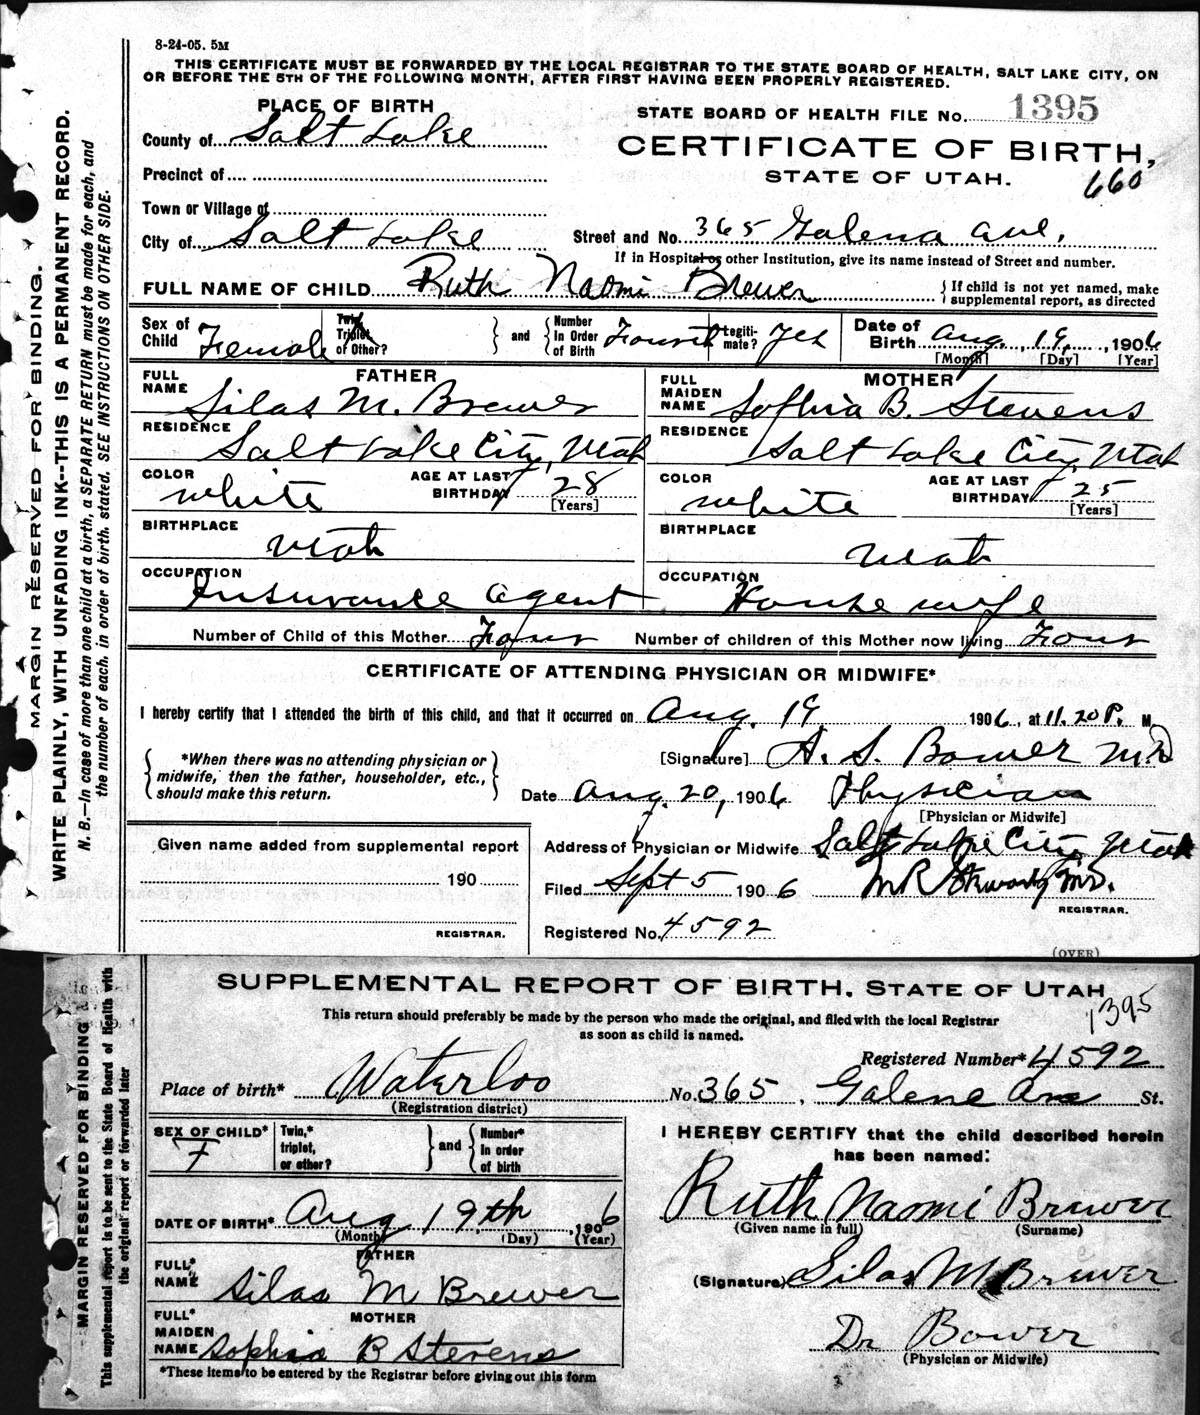 8-24-05. 5M
THIS CERTIFICATE MUST BE FORWARDED BY THE LOCAL REGISTRAR TO THE STATE BOARD OF HEALTH, SALT LAKE CITY, ON
OR BEFORE THE 5TH OF THE FOLLOWING MONTH, AFTER FIRST HAVING BEEN PROPERLY REGISTERED.
MARGIN RESERVED FOR BINDING.
WRITE PLAINLY, WITH UNFADING INK--THIS IS A PERMANENT RECORD.
N. B.—In case of more than one child at a birth, a SEPARATE RETURN must be made for each, and
the number of each, in order of birth, stated. SEE INSTRUCTIONS ON OTHER SIDE.
PLACE OF BIRTH
STATE BOARD OF HEALTH FILE No. 1395
County of Salt Lake
CERTIFICATE OF BIRTH,
Precinct of
STATE OF UTAH.
660
Town or Village of
City of Salt Lake
Street and No. 365 Galena Ave,
If in Hospital or other Institution, give its name instead of Street and number.
FULL NAME OF CHILD Ruth Naomi Brewer
If child is not yet named, make supplemental report, as directed
Sex of Child Female
Twin Triplet or Other?
and
Number In Order of Birth Fourth
Legitimate? Yes
Date of Birth Aug. 19, 1906
[Month] [Day] [Year]
FATHER
FULL NAME Silas M. Brewer
RESIDENCE Salt Lake City, Utah
COLOR White
AGE AT LAST BIRTHDAY 28 [Years]
BIRTHPLACE Utah
OCCUPATION Insurance Agent
MOTHER
FULL MAIDEN NAME Sophia B. Stevens
RESIDENCE Salt Lake City, Utah
COLOR White
AGE AT LAST BIRTHDAY 25 [Years]
BIRTHPLACE Utah
OCCUPATION House wife
Number of Child of this Mother Four
Number of children of this Mother now living Four
CERTIFICATE OF ATTENDING PHYSICIAN OR MIDWIFE*
I hereby certify that I attended the birth of this child, and that it occurred on Aug. 19 1906, at 11.20 P. M
*When there was no attending physician or
midwife, then the father, householder, etc.,
should make this return.
[Signature] A. S. Bower M.D
Date Aug. 20, 1906 Physician
[Physician or Midwife]
Given name added from supplemental report
190
REGISTRAR.
Address of Physician or Midwife Salt Lake City, Utah
Filed Sept 5 1906 M R Stewart, M.D.
REGISTRAR.
Registered No. 4592
(OVER)
MARGIN RESERVED FOR BINDING
This supplemental report is to be sent to the State Board of Health with
the original report or forwarded later
SUPPLEMENTAL REPORT OF BIRTH. STATE OF UTAH
1395
This return should preferably be made by the person who made the original, and filed with the local Registrar
as soon as child is named.
Registered Number* 4592
Place of birth* Waterloo
No. 365, Galene Ave St.
(Registration district)
SEX OF CHILD* F
Twin,* triplet, or other?
and
Number* In order of birth
DATE OF BIRTH* Aug 19th, 1906
(Month) (Day) (Year)
FATHER
FULL* NAME Silas M Brewer
MOTHER
FULL* MAIDEN NAME Sophia B Stevens
*These items to be entered by the Registrar before giving out this form
I HEREBY CERTIFY that the child described herein
has been named:
Ruth Naomi Brewer
(Given name in full) (Surname)
(Signature) Silas M Brewer
Dr Bower
(Physician or Midwife)